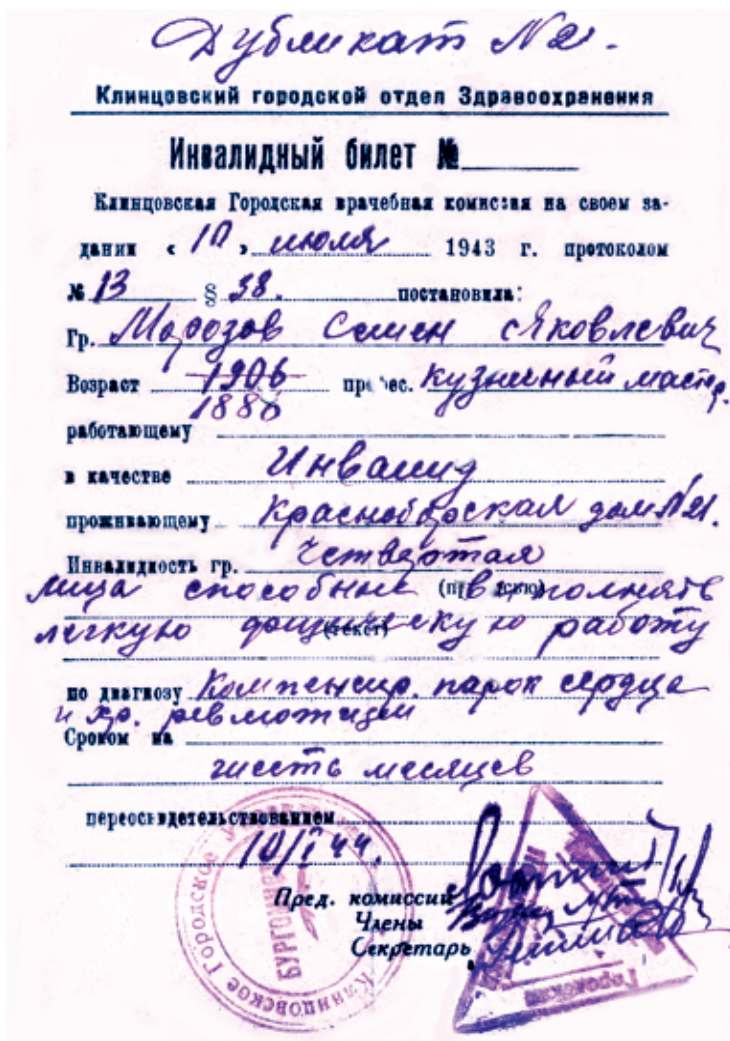 Дубликат № 2.
Клинцовский городской отдел Здравоохранения
Инвалидный билет №
Клинцовская Городская врачебная комиссия на своем за-
дании « 10 » июля 1943 г. протоколом
№ 13 § 38. постановила:
Гр. Морозов Семен Яковлевич
Возраст 1906 профес. кузнечный мастер.
1886
работающему
в качестве Инвалид
проживающему Красноборская дом № 21.
Инвалидность гр. Четвертая
лица способные выполнять
легкую физическую работу
(текст)
по диагнозу Компенсир. порок сердца
и хр. ревмотизм
Сроком на
шесть месяцев
переосвидетельствованием
10/I 44.
Пред. комиссии
Члены
Секретарь
Клинцовское Городское
БУРГО
Городской